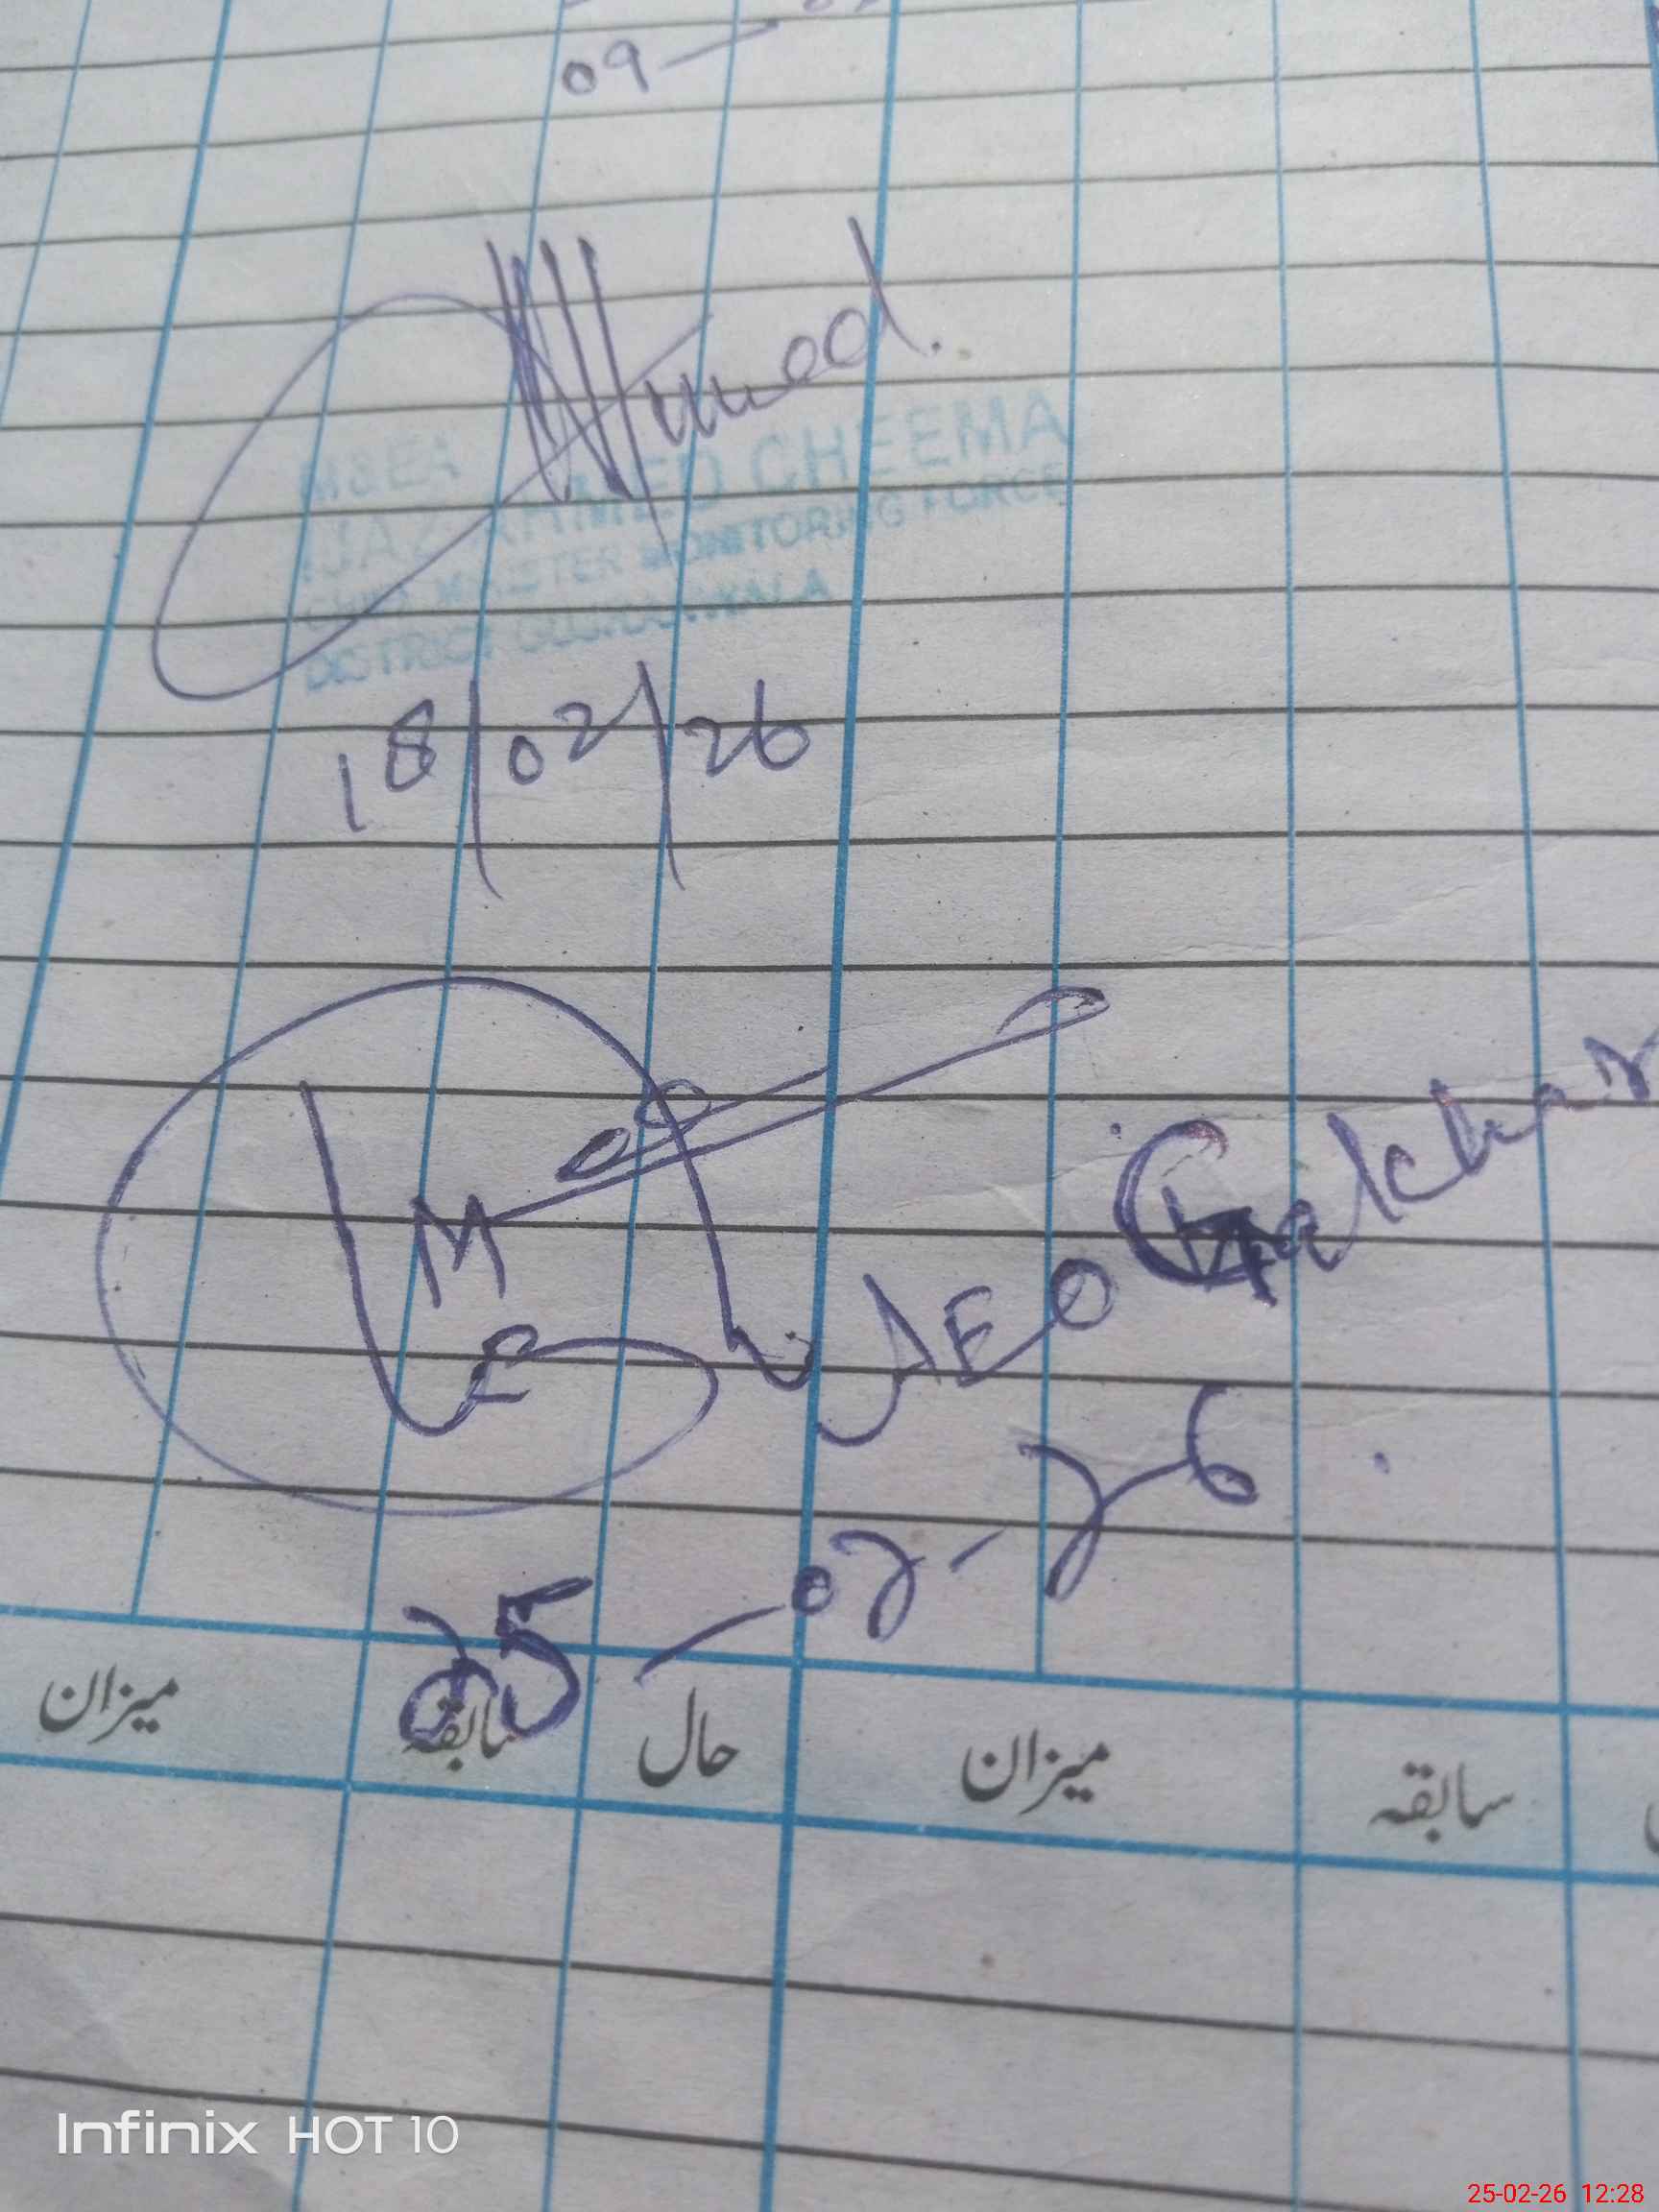 09
Ahmed.
M&EA
IJAZ AHMED CHEEMA
CHIEF MINISTER MONITORING FORCE
DISTRICT GUJRANWALA
18/02/26
AEO Gakhar
25-02-26
میزان سابقہ حال میزان سابقہ
Infinix HOT 10
25-02-26 12:28